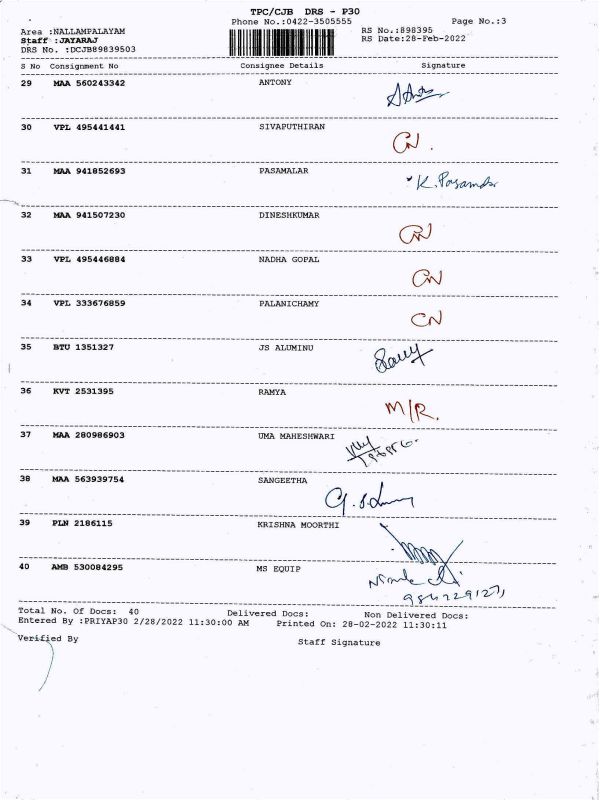 TPC/CJB DRS - P30
Phone No.:0422-3505555 Page No.:3
Area :NALLAMPALAYAM RS No.:898395
Staff :JAYARAJ RS Date:28-Feb-2022
DRS No. :DCJB89839503
S No Consignment No Consignee Details Signature
29 MAA 560243342 ANTONY
30 VPL 495441441 SIVAPUTHIRAN
CN .
31 MAA 941852693 PASAMALAR
32 MAA 941507230 DINESHKUMAR
CN
33 VPL 495446884 NADHA GOPAL
CN
34 VPL 333676859 PALANICHAMY
CN
35 BTU 1351327 JS ALUMINU
36 KVT 2531395 RAMYA
M/R.
37 MAA 280986903 UMA MAHESHWARI
38 MAA 563939754 SANGEETHA
39 PLN 2186115 KRISHNA MOORTHI
40 AMB 530084295 MS EQUIP
Total No. Of Docs: 40 Delivered Docs: Non Delivered Docs:
Entered By :PRIYAP30 2/28/2022 11:30:00 AM Printed On: 28-02-2022 11:30:11
Verified By Staff Signature